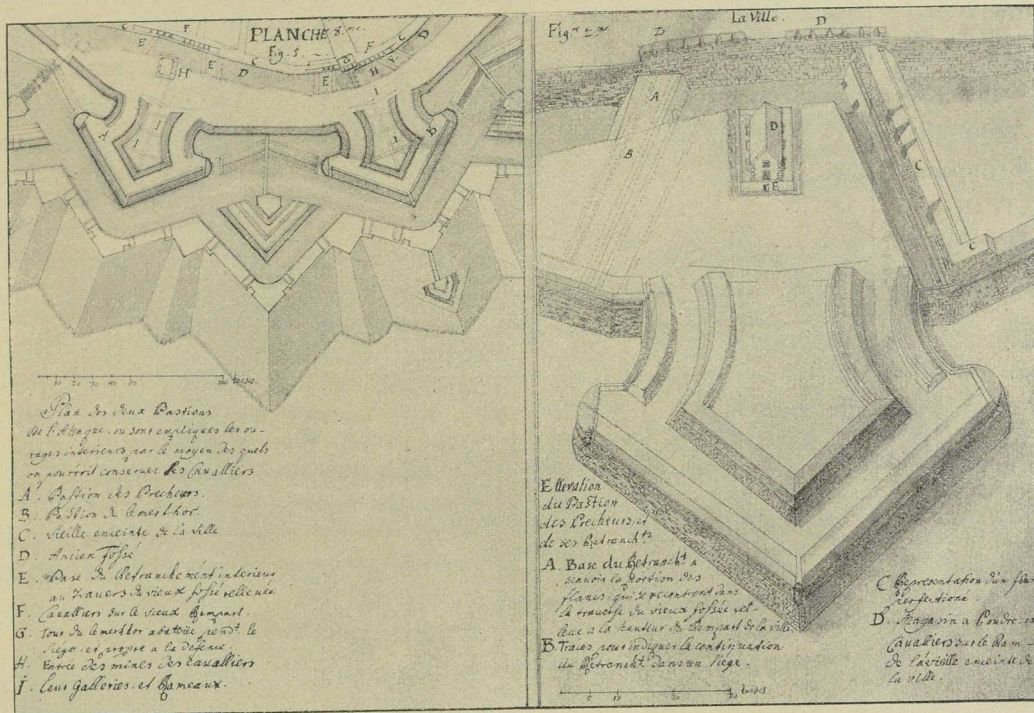 PLANCHE 8.me
Fig. 5.
Plan des deux Bastions
de l'Attaque, ou sont expliques les ou-
rages interieurs par le moyen des quels
on pourrit conserver les Cavalliers
A. Bastion des Precheurs.
B. Bastion de lemerthor.
C. Vieille enceinte de la ville
D. Ancien fossé
E. Base du Retranchement interieur
au travers du vieux fossé
F. Cavalliers sur le vieux Rempart.
G. Tour du lemerthor abatüe pend.t le
siege, et propre a la defense.
H. Entrée des mines des Cavalliers
I. leur Galleries et Rameaux.
10 20 30 40 50 100 toises.
Fig.re 2.me
La Ville.
Ellevation
du Bastion
des Precheurs, et
de ses Retranch.ts
A. Base du Retranch.t a
scavoir la portion des
flancs, qui se rencontrent dans
la traverse du vieux fossée rel-
leué a la hauteur du Rempart de la Ville
B. Traces pour indiquer la continuation
du Retranch.t dans un siege.
C Representation d'un
perfectioné.
D. Magasin a Poudre,
Cavalliers sur le Ram-
de la vieille enceinte de
la ville.
5 10 20 30 toises